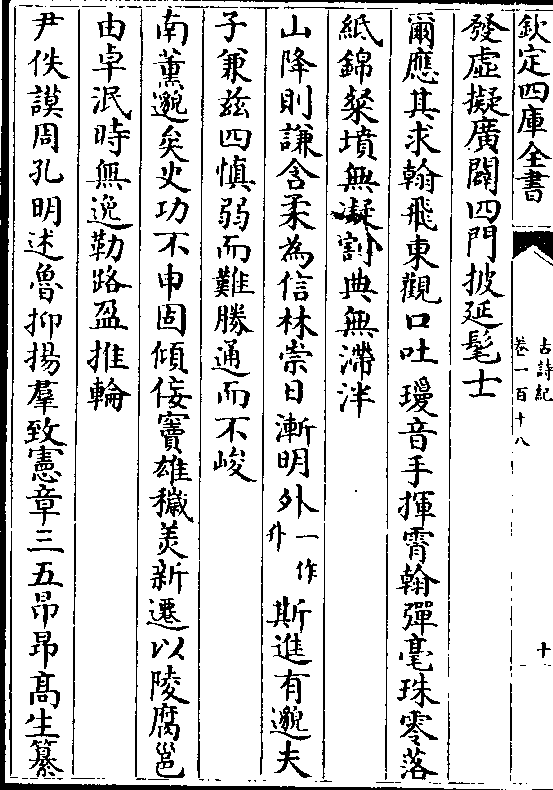 欽定四庫全書
古詩紀
卷一百十八
十
發虛擬廣闢四門披延髦士
爾應其求翰飛東觀口吐瓊音手揮霄翰彈毫珠零落
紙錦粲墳無凝割典無滯泮
山降則謙含柔為信林崇日漸明外一作升斯進有邈夫
子兼茲四慎弱而難勝通而不峻
南董邈矣史功不申固傾佞竇雄穢美新遷以陵腐邕
由卓泯時無逸勒路盈推輪
尹佚謨周孔明述魯抑揚羣致憲章三五昂昂髙生纂